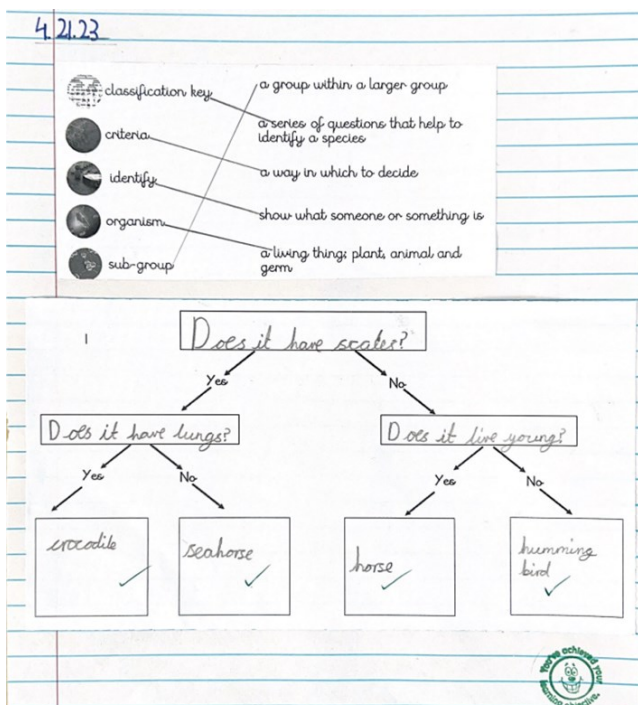 4.21.23
classification key
a group within a larger group
criteria
a series of questions that help to
identify a species
identify
a way in which to decide
organism
show what someone or something is
sub-group
a living thing; plant, animal and
germ
1
Does it have scales?
Yes
No
Does it have lungs?
Does it live young?
Yes
No
Yes
No
crocodile
seahorse
horse
humming
bird
You've achieved your
learning objective.